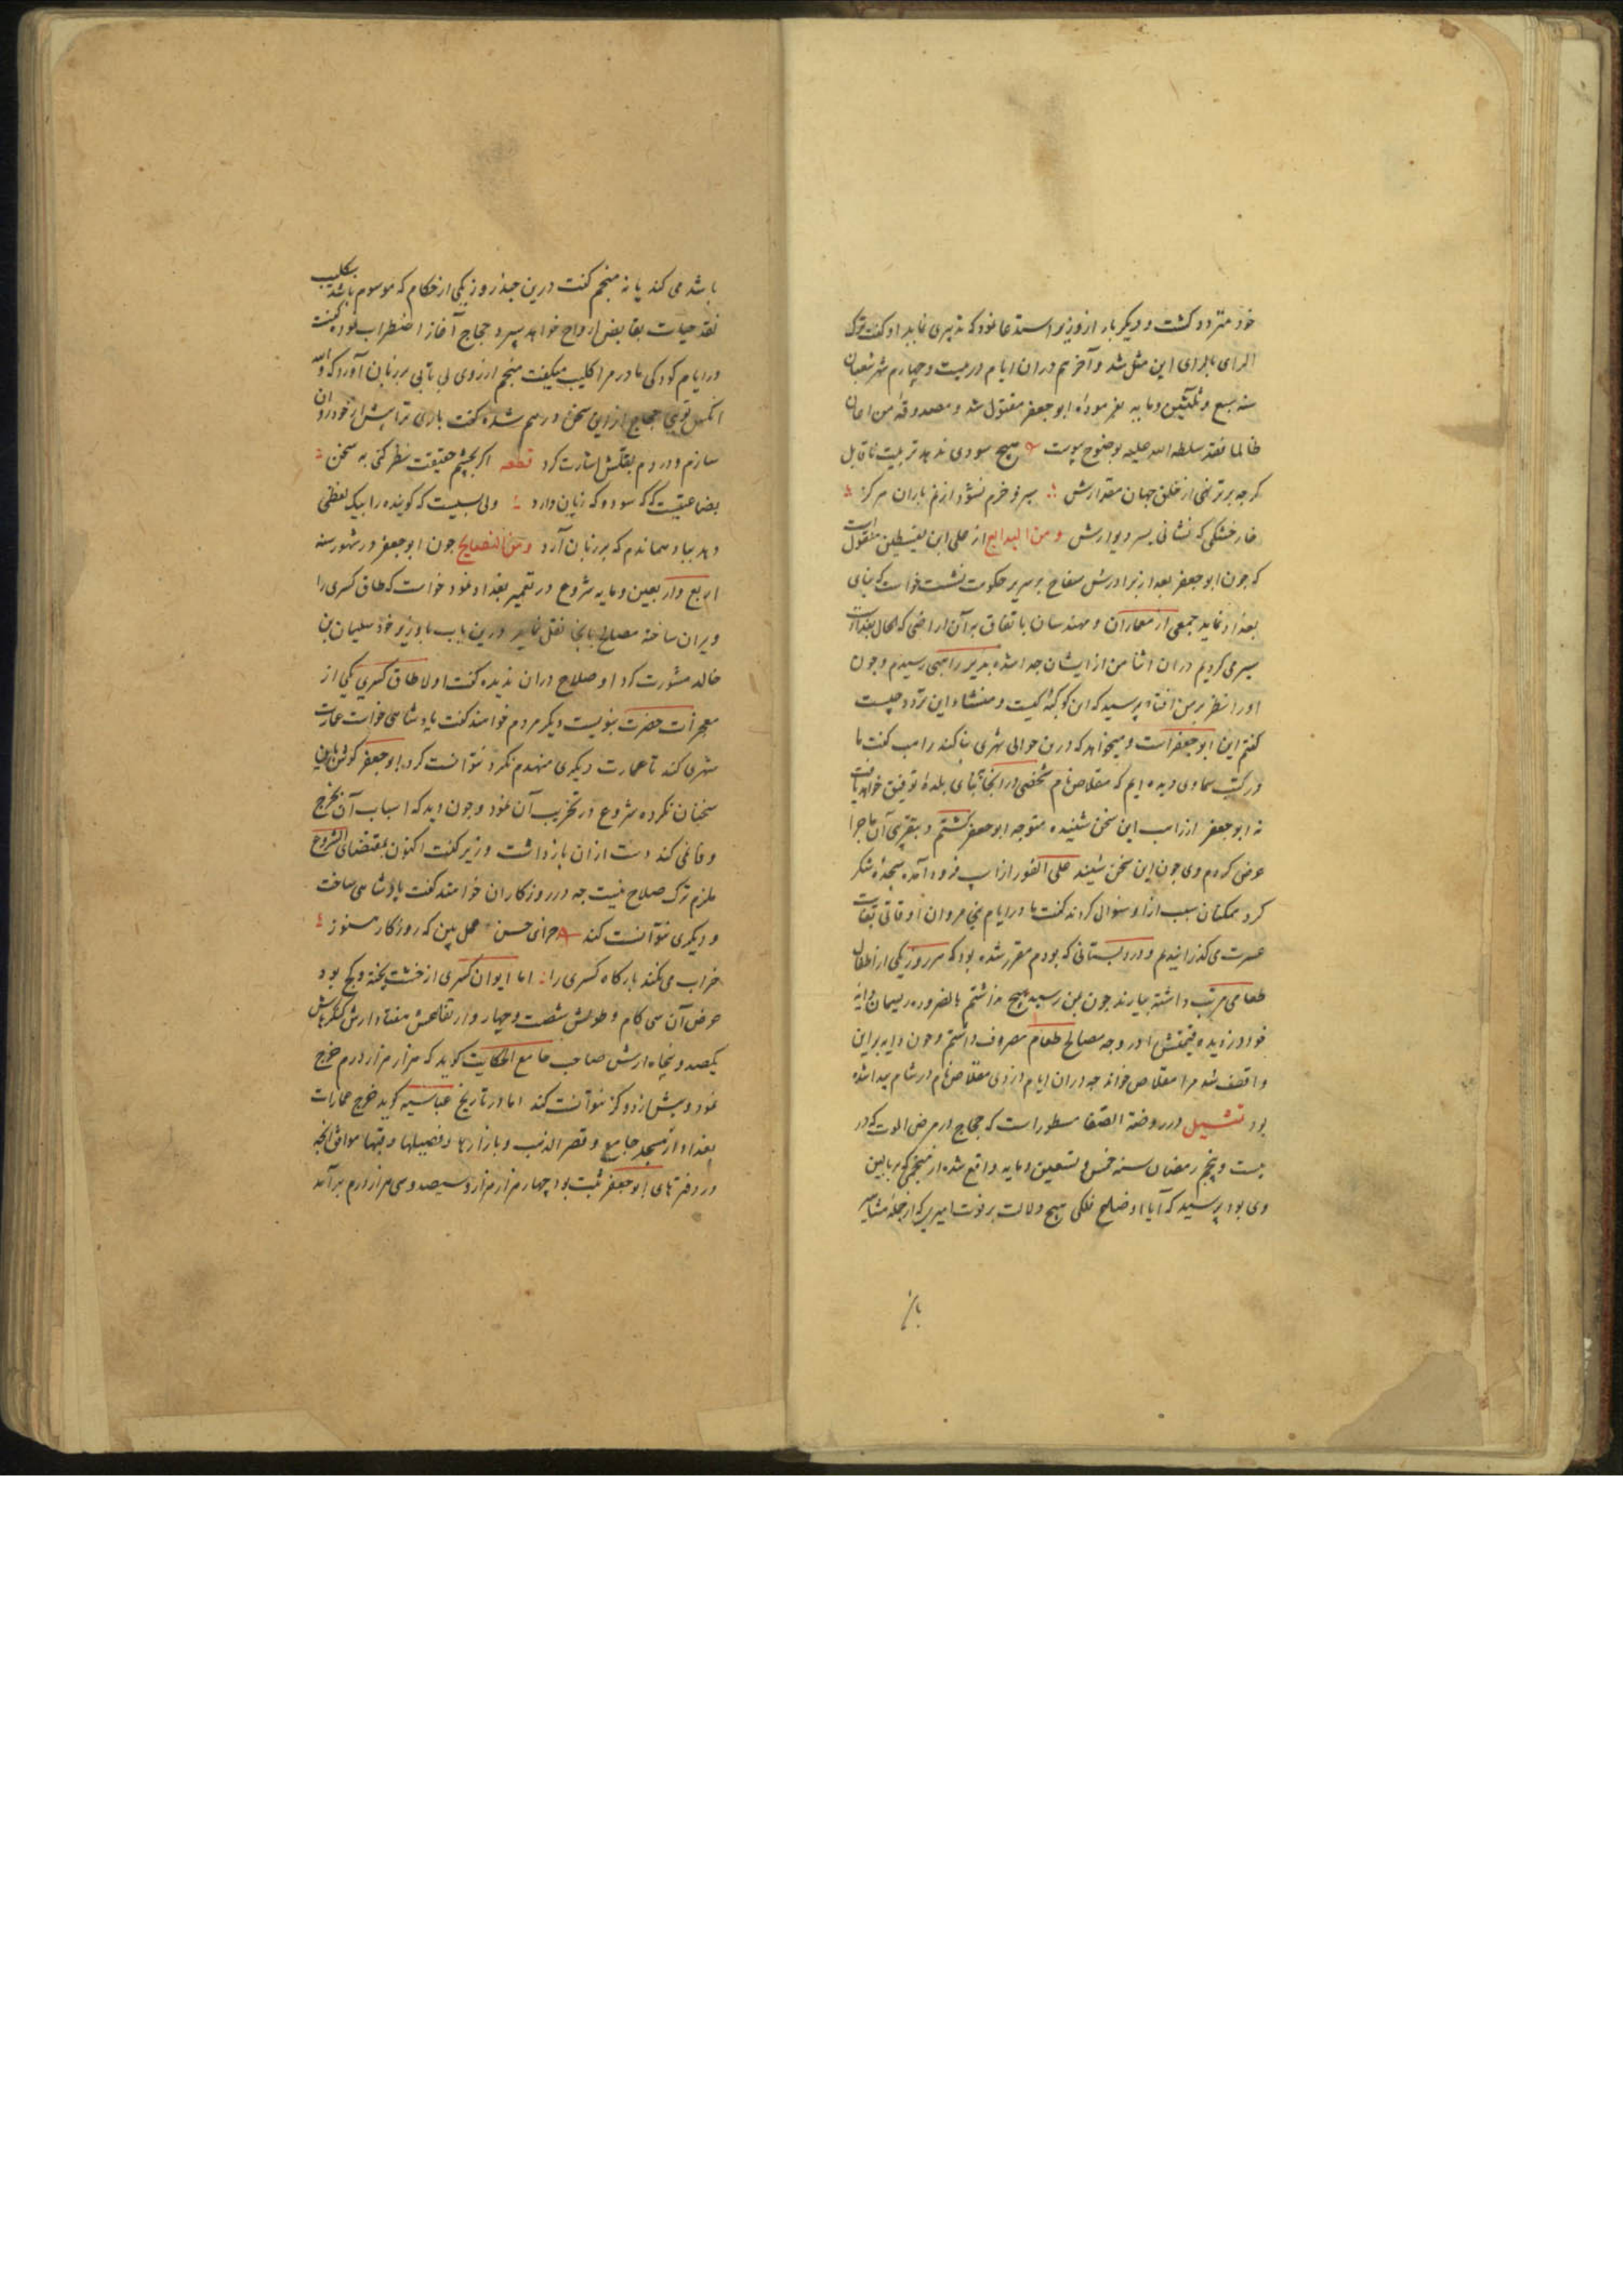 خود متردد کشت و دیکر بار از وزیر استدعا نمود که تدبیری نماید او کفت ترک
الرای بالرای این مثل شد و آخر هم دران ایام در بیست و چهارم شهر شعبان
سنه سبع و ثلثین و مایه بفرموده ابو جعفر مقتول شد و مصدوقه من اعان
ظالما فقد سلطه الله علیه بوضوح پیوست هیچ سودی ندهد تربیت ناقابل
کرچه برتر نهی از خلق جهان مقدارش سبز و خرم نشود از نم باران هرکز
خار خشکی که نشانی بسر دیوارش و من البدایع از علی ابن یقطین منقول است
که چون ابو جعفر بعد از برادرش سفاح بر سریر حکومت نشست خواست که بنای
بغداد نماید جمعی از معماران و مهندسان باتفاق بر آن اراضی که الحال بغدادست
سیر می کردیم دران اثنا من از ایشان جدا شده بدیر راهبی رسیدم و چون
اورا نظر بر من افتاد پرسید که این کوکبه کیست و منشاء این تردد چیست
کفتم این ابو جعفر است و میخواهد که درین حوالی شهری بنا کند راهب کفت ما
در کتب سماوی دیده ایم که مقلاص نام شخصی در اینجا به بنای بلده توفیق خواهد یافت
نه ابو جعفر از راهب این سخن شنیده متوجه ابو جعفر کشتم و بتقریبی آن ماجرا
عرض کردم وی چون این سخن شنید علی الفور از اسپ فرود آمده سجده شکر
کرد همکنان سبب ازو سئوال کردند کفت ما در ایام بنی مروان اوقاتی بغایت
عسرت می کذرانیدیم و در دبستانی که بودم مقرر شده بود که هر روز یکی از اطفال
طعامی مرتب داشته بیارند چون بمن رسید هیچ نداشتم بالضروره ریسمان دایه
خود دزدیده قیمتش در وجه مصالح طعام مصروف داشتم و چون دایه بر این
واقف شد مرا مقلاص خواند چه دران ایام دزدی مقلاص نام در شام پیدا شده
بود تمثیل در روضة الصفا مسطور است که حجاج در مرض الموت که در
بیست و پنجم رمضان سنه خمس و تسعین و مایه واقع شده از منجمی که بر بالین
وی بود پرسید که آیا اوضاع فلکی هیچ دلالت بر فوت امیری که از جمله مشاهیر
باشد
باشد می کند یا نه منجم کفت درین چند روز یکی از حکام که موسوم باشد بکلیب
نقد حیات بقابض ارواح خواهد سپرد حجاج آغاز اضطراب نموده کفت
در ایام کودکی مادر مرا کلیب میکفت منجم از روی بی تابی بر زبان آورد که والله
آنکس تویی حجاج از این سخن درهم شده کفت باری ترا پیش از خود روان
سازم و در دم بقتلش اشارت کرد قطعه اکر بچشم حقیقت نظر کنی به سخن
بضاعتیست که که سود و که زیان دارد ولی بسیست که کوینده را بیک لفظی
دهد بباد هماندم که بر زبان آرد و من النصایح چون ابو جعفر در شهور سنه
اربع و اربعین و مایه شروع در تعمیر بغداد نمود خواست که طاق کسری را
ویران ساخته مصالح بانجا نقل نماید درین باب با وزیر خود سلیمان بن
خالد مشورت کرد او صلاح دران ندیده کفت اولا طاق کسری یکی از
معجزات حضرت نبویست دیکر مردم خواهند کفت پادشاهی خواست عمارت
شهری کند تا عمارت دیکری منهدم نکرد نتوانست کرد ابو جعفر کوش باین
سخنان نکرده شروع در تخریب آن نمود و چون دید که اسباب آن بخرج
وفا نمی کند دست ازان باز داشت وزیر کفت اکنون بمقتضای الشروع
ملزم ترک صلاح نیست چه در روزکاران خواهند کفت پادشاهی ساخت
و دیکری نتوانست کند جزای حسن عمل بین که روزکار هنوز
خراب می نکند بارکاه کسری را اما ایوان کسری از خشت پخته و کج بود
عرض آن سی کام و طولش شصت و چهار و ارتفاعش هفتاد ارش کنکرهاش
یکصد و پنجاه ارش صاحب جامع الحکایت کوید که هزار هزار درم خرج
نمود و بیش از دو کز نتوانست کند اما در تاریخ عباسیه کوید خرج عمارات
بغداد از مسجد جامع و قصر الذهب و بازارها و فصیلها و قبها موافق آنچه
در دفترهای ابو جعفر ثبت بود چهار هزار هزار و سیصد و سی هزار درم برآمد